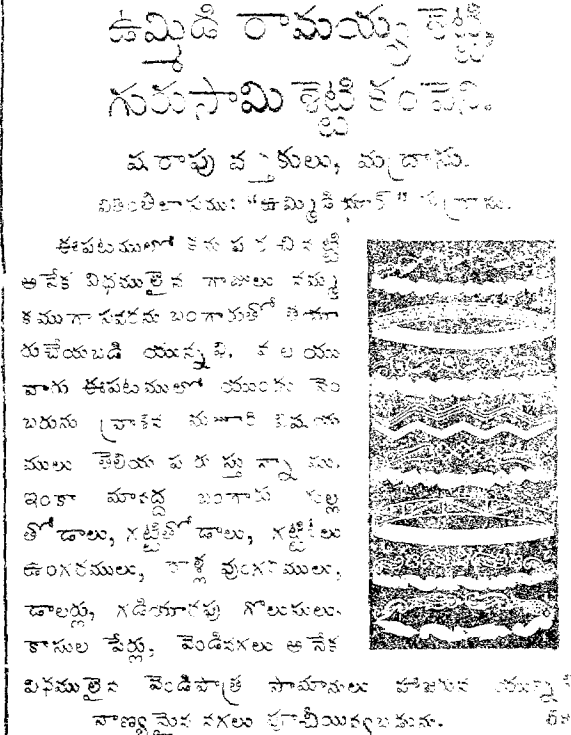 ఉమ్మిడి రామయ్య శెట్టి
గురుసామి శెట్టి కంపెని.
షరాపు వర్తకులు, మద్రాసు.
"ఉమ్మిడి మద్రాసు.
ఈపటములో కనుపరచినట్టి
అనేక విధములైన గాజులు నమ్మ
కముగా సవరను బంగారుతో తయా
రుచేయబడి యున్నవి. కలయు
వారు ఈపటములో యుండు నెం
బరును వ్రాసిన మజూరి క్రమయ
ములు తెలియపరుస్తున్నాము.
ఇంకా మావద్ద బంగారు
తోడాలు, గట్టితోడాలు,
ఉంగరములు, రాళ్ల వుంగరములు,
డాలర్లు, గడియారపు గొలుసులు,
కాసుల పేర్లు, వెండినగలు అనేక
విధములైన వెండిపాత్ర సామానులు హాజరున యున్నవి
నాణ్యమైన నగలు